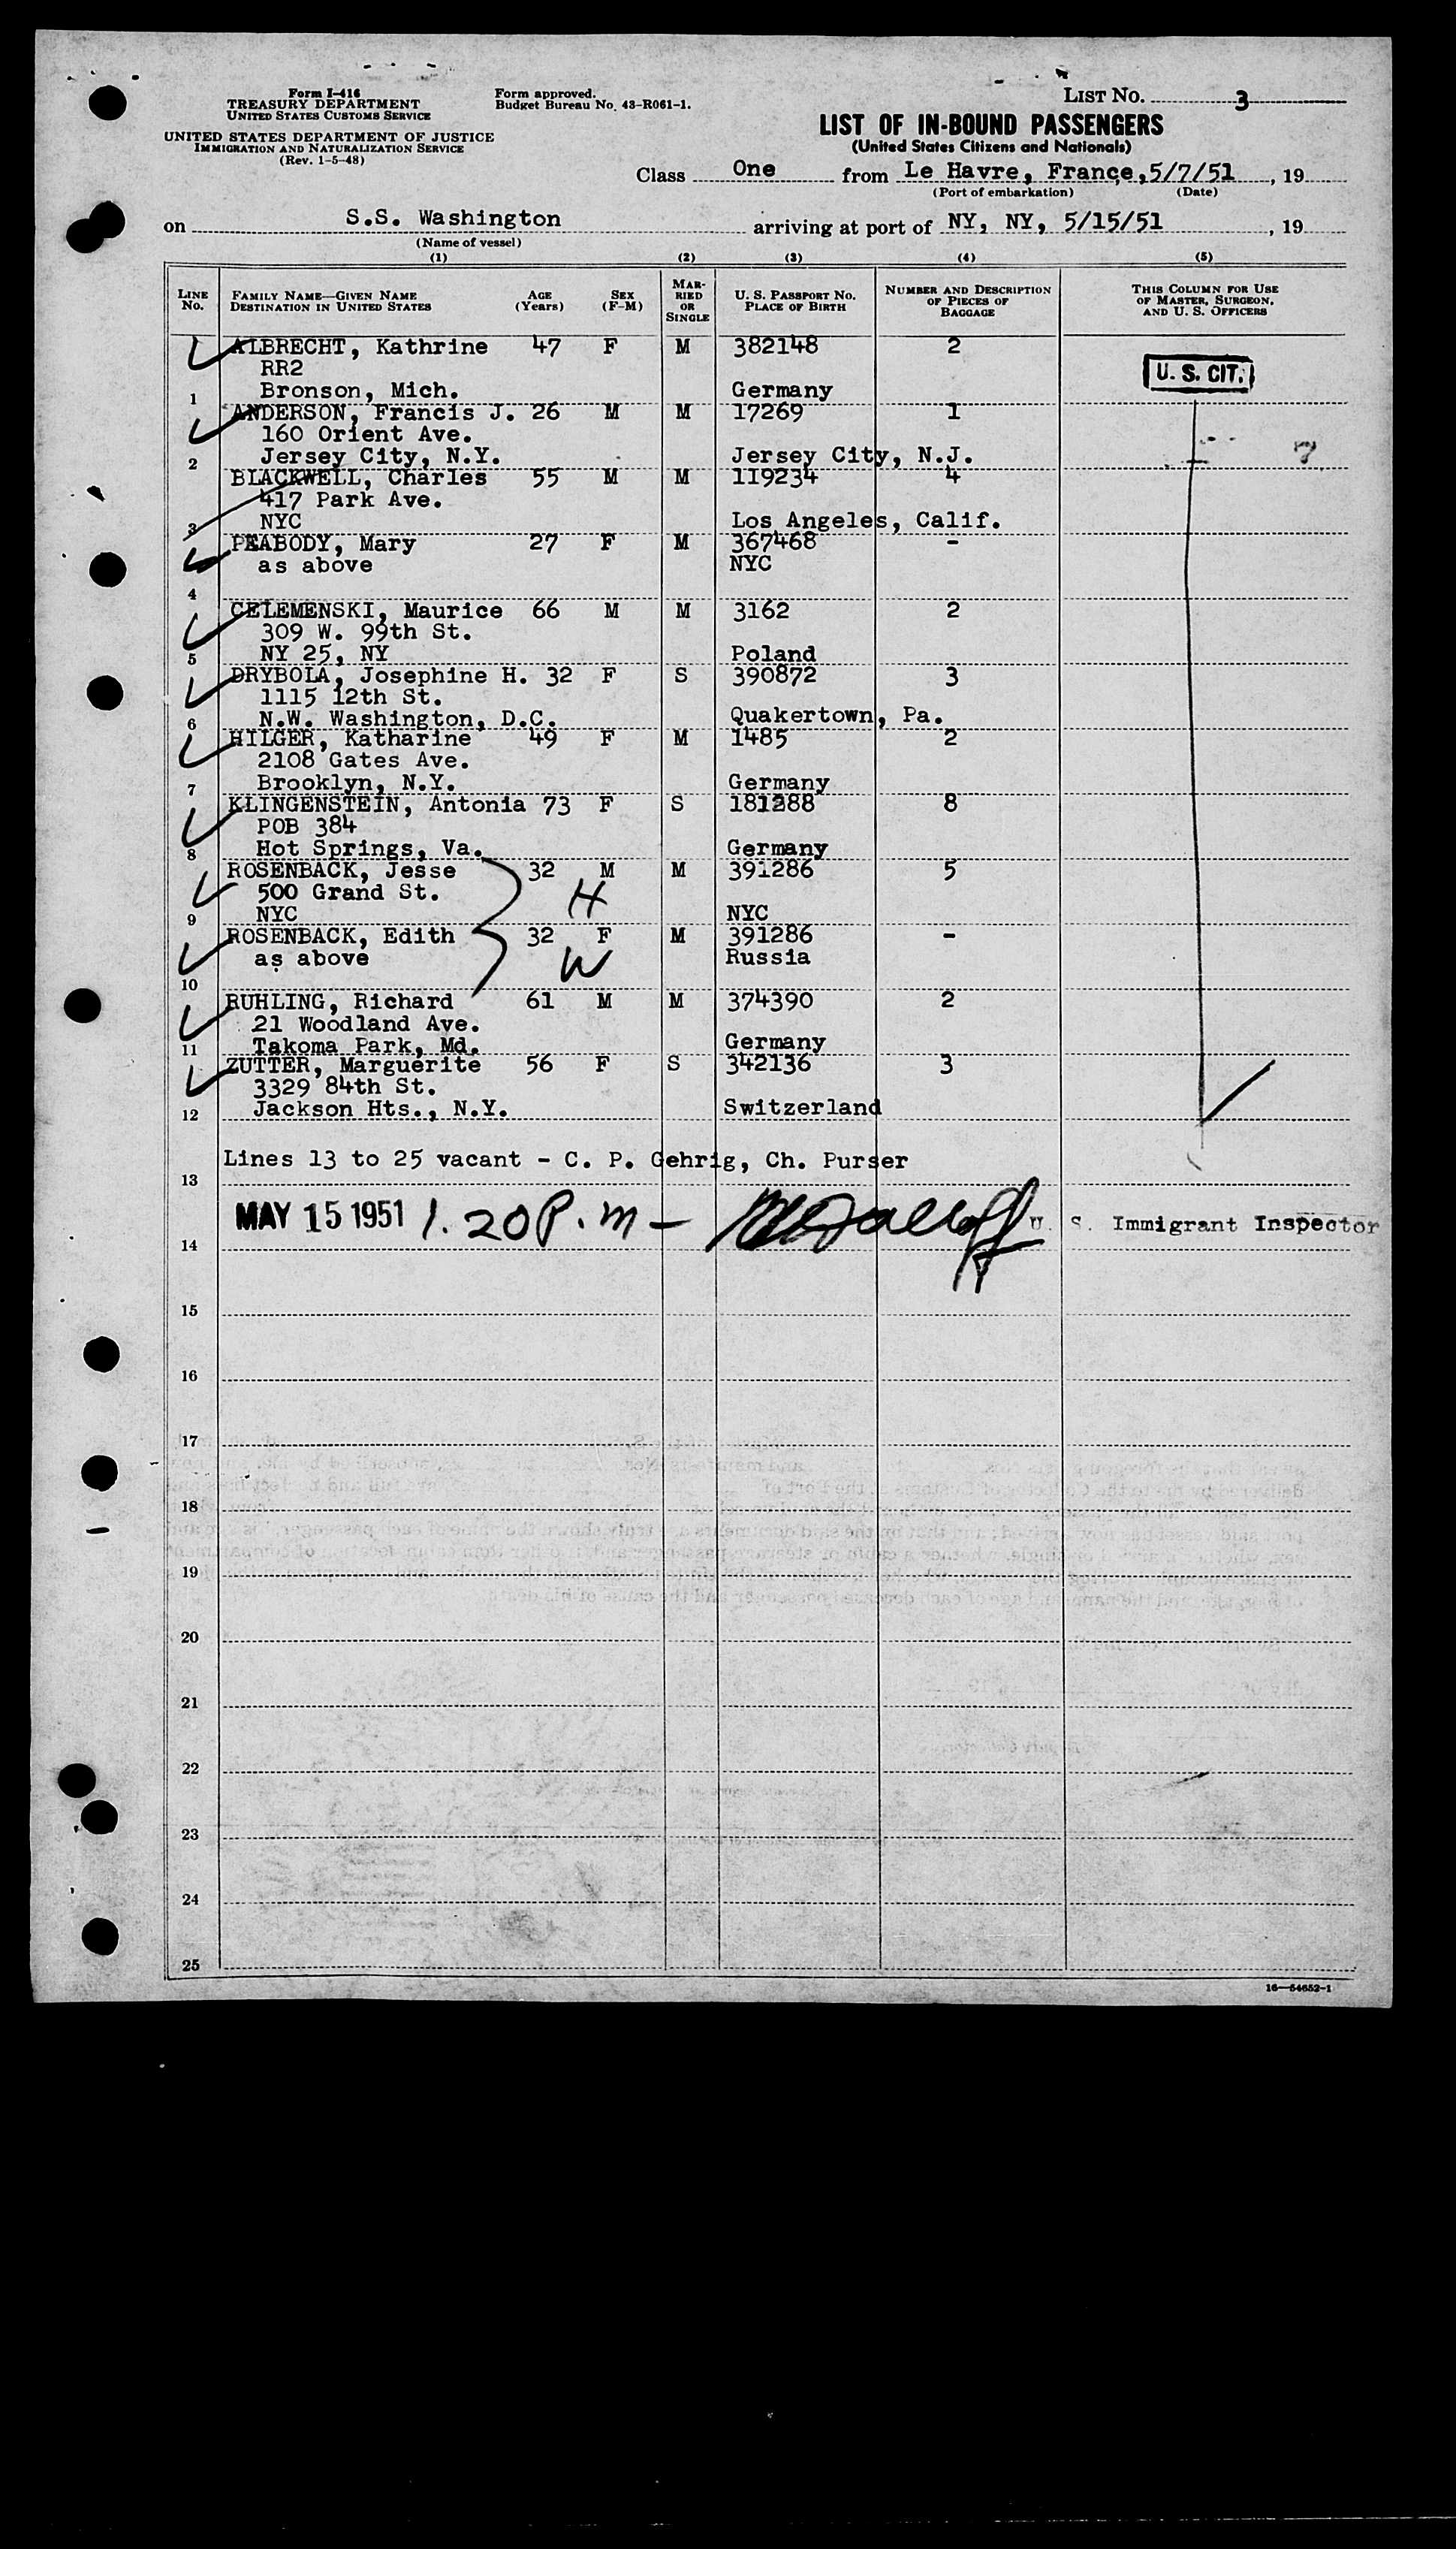 Form I-416
TREASURY DEPARTMENT
UNITED STATES CUSTOMS SERVICE
UNITED STATES DEPARTMENT OF JUSTICE
IMMIGRATION AND NATURALIZATION SERVICE
(Rev. 1-5-48)
Form approved.
Budget Bureau No. 43-R061-1.
LIST NO. 3
LIST OF IN-BOUND PASSENGERS
(United States Citizens and Nationals)
Class One from Le Havre, France, 5/7/51, 19
(Port of embarkation) (Date)
on S.S. Washington arriving at port of NY, NY, 5/15/51, 19
(Name of vessel)
(1) (2) (3) (4) (5)
LINE NO. FAMILY NAME—GIVEN NAME DESTINATION IN UNITED STATES AGE (Years) SEX (F-M) MARRIED OR SINGLE U. S. PASSPORT NO. PLACE OF BIRTH NUMBER AND DESCRIPTION OF PIECES OF BAGGAGE THIS COLUMN FOR USE OF MASTER, SURGEON, AND U. S. OFFICERS
ALBRECHT, Kathrine 47 F M 382148 2
RR2 U. S. CIT.
1 Bronson, Mich. Germany
ANDERSON, Francis J. 26 M M 17269 1
160 Orient Ave.
2 Jersey City, N.Y. Jersey City, N.J. 7
BLACKWELL, Charles 55 M M 119234 4
417 Park Ave.
3 NYC Los Angeles, Calif.
PEABODY, Mary 27 F M 367468 -
as above NYC
4
CELEMENSKI, Maurice 66 M M 3162 2
309 W. 99th St.
5 NY 25, NY Poland
DRYBOLA, Josephine H. 32 F S 390872 3
1115 12th St.
6 N.W. Washington, D.C. Quakertown, Pa.
HILGER, Katharine 49 F M 1485 2
2108 Gates Ave.
7 Brooklyn, N.Y. Germany
KLINGENSTEIN, Antonia 73 F S 181288 8
POB 384
8 Hot Springs, Va. Germany
ROSENBACK, Jesse 32 M M 391286 5
500 Grand St. H
9 NYC NYC
ROSENBACK, Edith 32 F M 391286 -
as above W Russia
10
RUHLING, Richard 61 M M 374390 2
21 Woodland Ave.
11 Takoma Park, Md. Germany
ZUTTER, Marguerite 56 F S 342136 3
3329 84th St.
12 Jackson Hts., N.Y. Switzerland
Lines 13 to 25 vacant - C. P. Gehrig, Ch. Purser
13
MAY 15 1951 1.20 P.m - U. S. Immigrant Inspector
14
15
16
17
18
19
20
21
22
23
24
25
16—54652-1